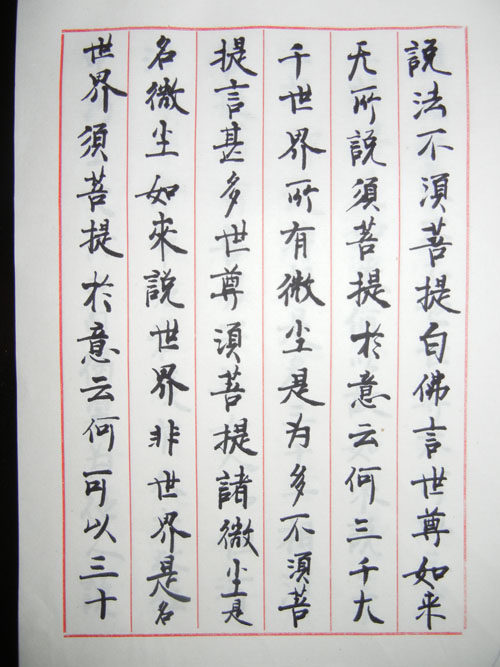 說法不須菩提白佛言世尊如来
无所說須菩提於意云何三千大
千世界所有微尘是为多不須菩
提言甚多世尊須菩提諸微尘是
名微尘如來說世界非世界是名
世界須菩提於意云何可以三十